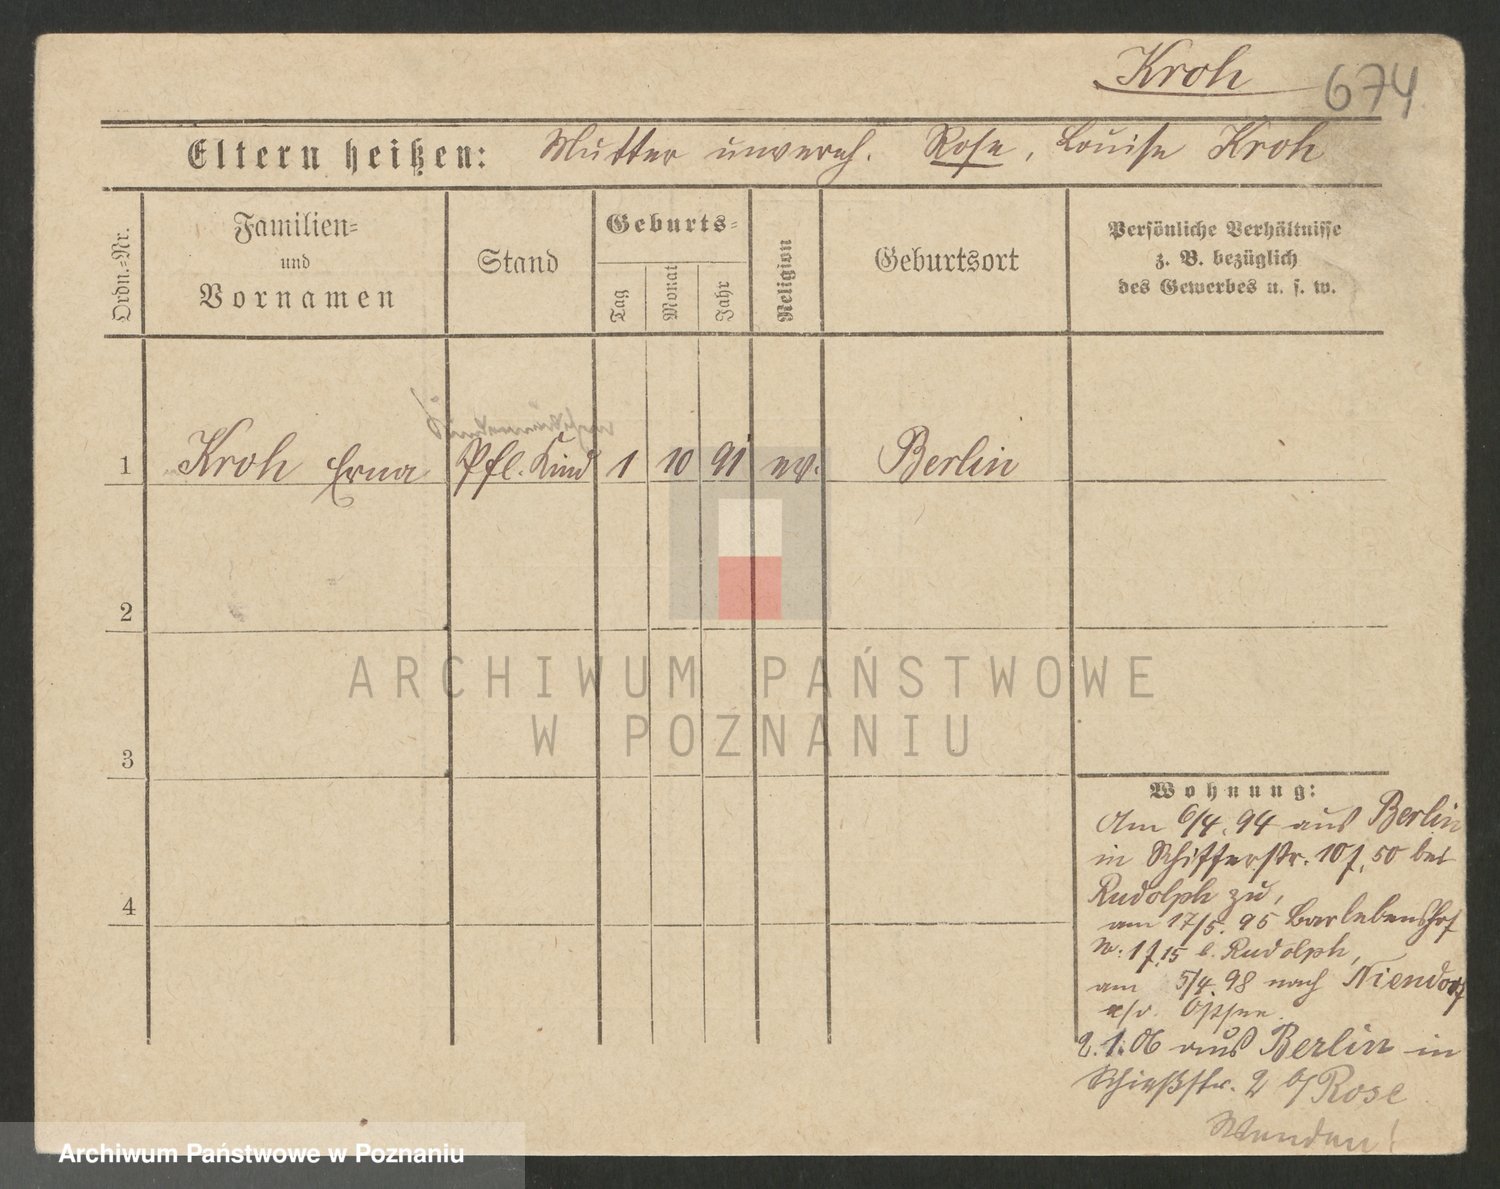 Kroh 674
Eltern heißen: Mutter unvereh. Rose, Louise Kroh
Ordn.-Nr.
Familien-
und
Vornamen
Stand
Geburts-
Tag
Monat
Jahr
Religion
Geburtsort
Persönliche Verhältnisse
z. B. bezüglich
des Gewerbes u. s. w.
1 Kroh Erna Pfl. Kind 1 10 91 ev. Berlin
2
3
4
Wohnung:
Am 6/4. 94 aus Berlin
in Schifferstr. 10 f. 50 bei
Rudolph zu,
am 17/5. 95 Barlebenshof
N: 1 f. 15 b. Rudolph,
am 5/4. 98 nach Niendorf
a/d. Ostsee.
2.1.06 aus Berlin in
Schießstr. 2 b/ Rose
Wenden!
ARCHIWUM PAŃSTWOWE
W POZNANIU
Archiwum Państwowe w Poznaniu